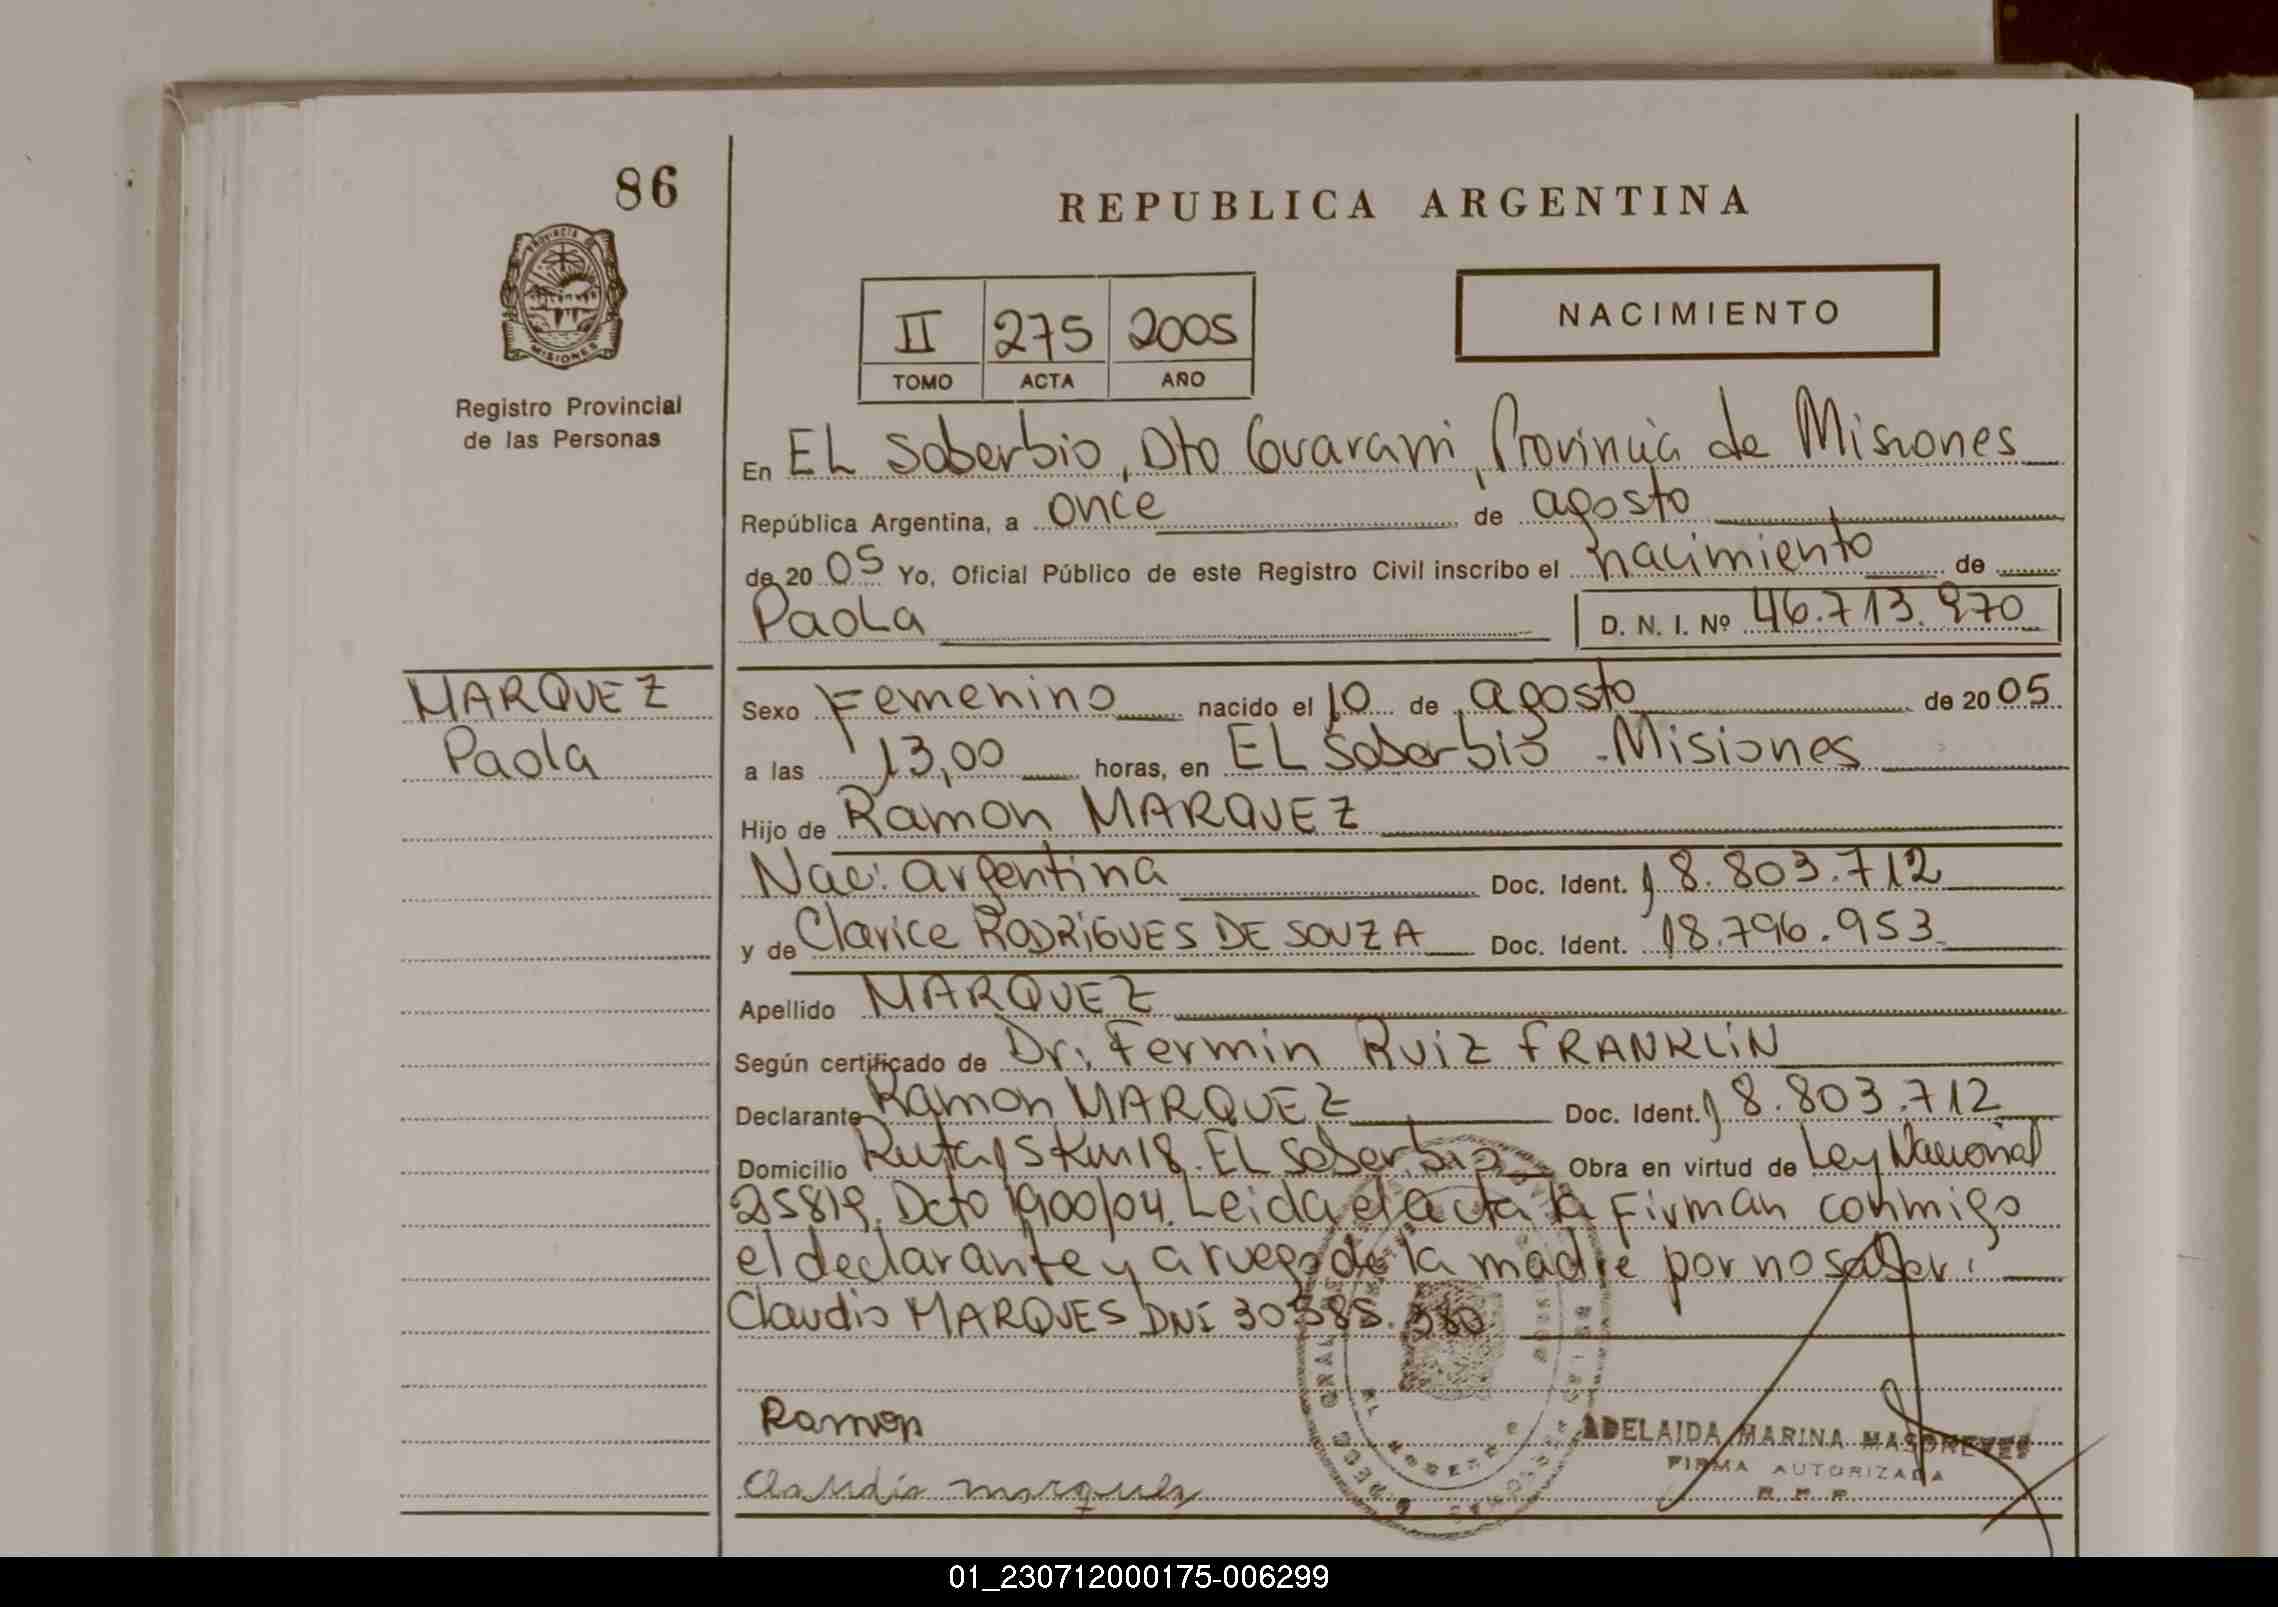 86
REPUBLICA ARGENTINA
PROVINCIA DE
MISIONES
Registro Provincial
de las Personas
II 275 2005
TOMO ACTA AÑO
NACIMIENTO
En EL Soberbio, Dto Guarani, Provincia de Misiones
República Argentina, a once de agosto
de 2005 Yo, Oficial Público de este Registro Civil inscribo el nacimiento de
Paola D. N. I. Nº 46.713.970
MARQUEZ
Paola
Sexo Femenino nacido el 10 de agosto de 2005
a las 13,00 horas, en EL Soberbio - Misiones
Hijo de Ramon MARQUEZ
Nac: argentina Doc. Ident. 18.803.712
y de Clarice RODRIGUES DE SOUZA Doc. Ident. 18.796.953
Apellido MARQUEZ
Según certificado de Dr. Fermin Ruiz FRANKLIN
Declarante Ramon MARQUEZ Doc. Ident. 18.803.712
Domicilio Ruta 15 Km 18. EL Soberbio Obra en virtud de Ley Nacional
25819. Dcto 1900/04. Leida el acta la Firman conmigo
el declarante y a ruego de la madre por no saber.
Claudio MARQUES DNI 30.585.380
Ramon
Claudio marquez
ADELAIDA MARINA
FIRMA AUTORIZADA
R. P. P.
01_230712000175-006299